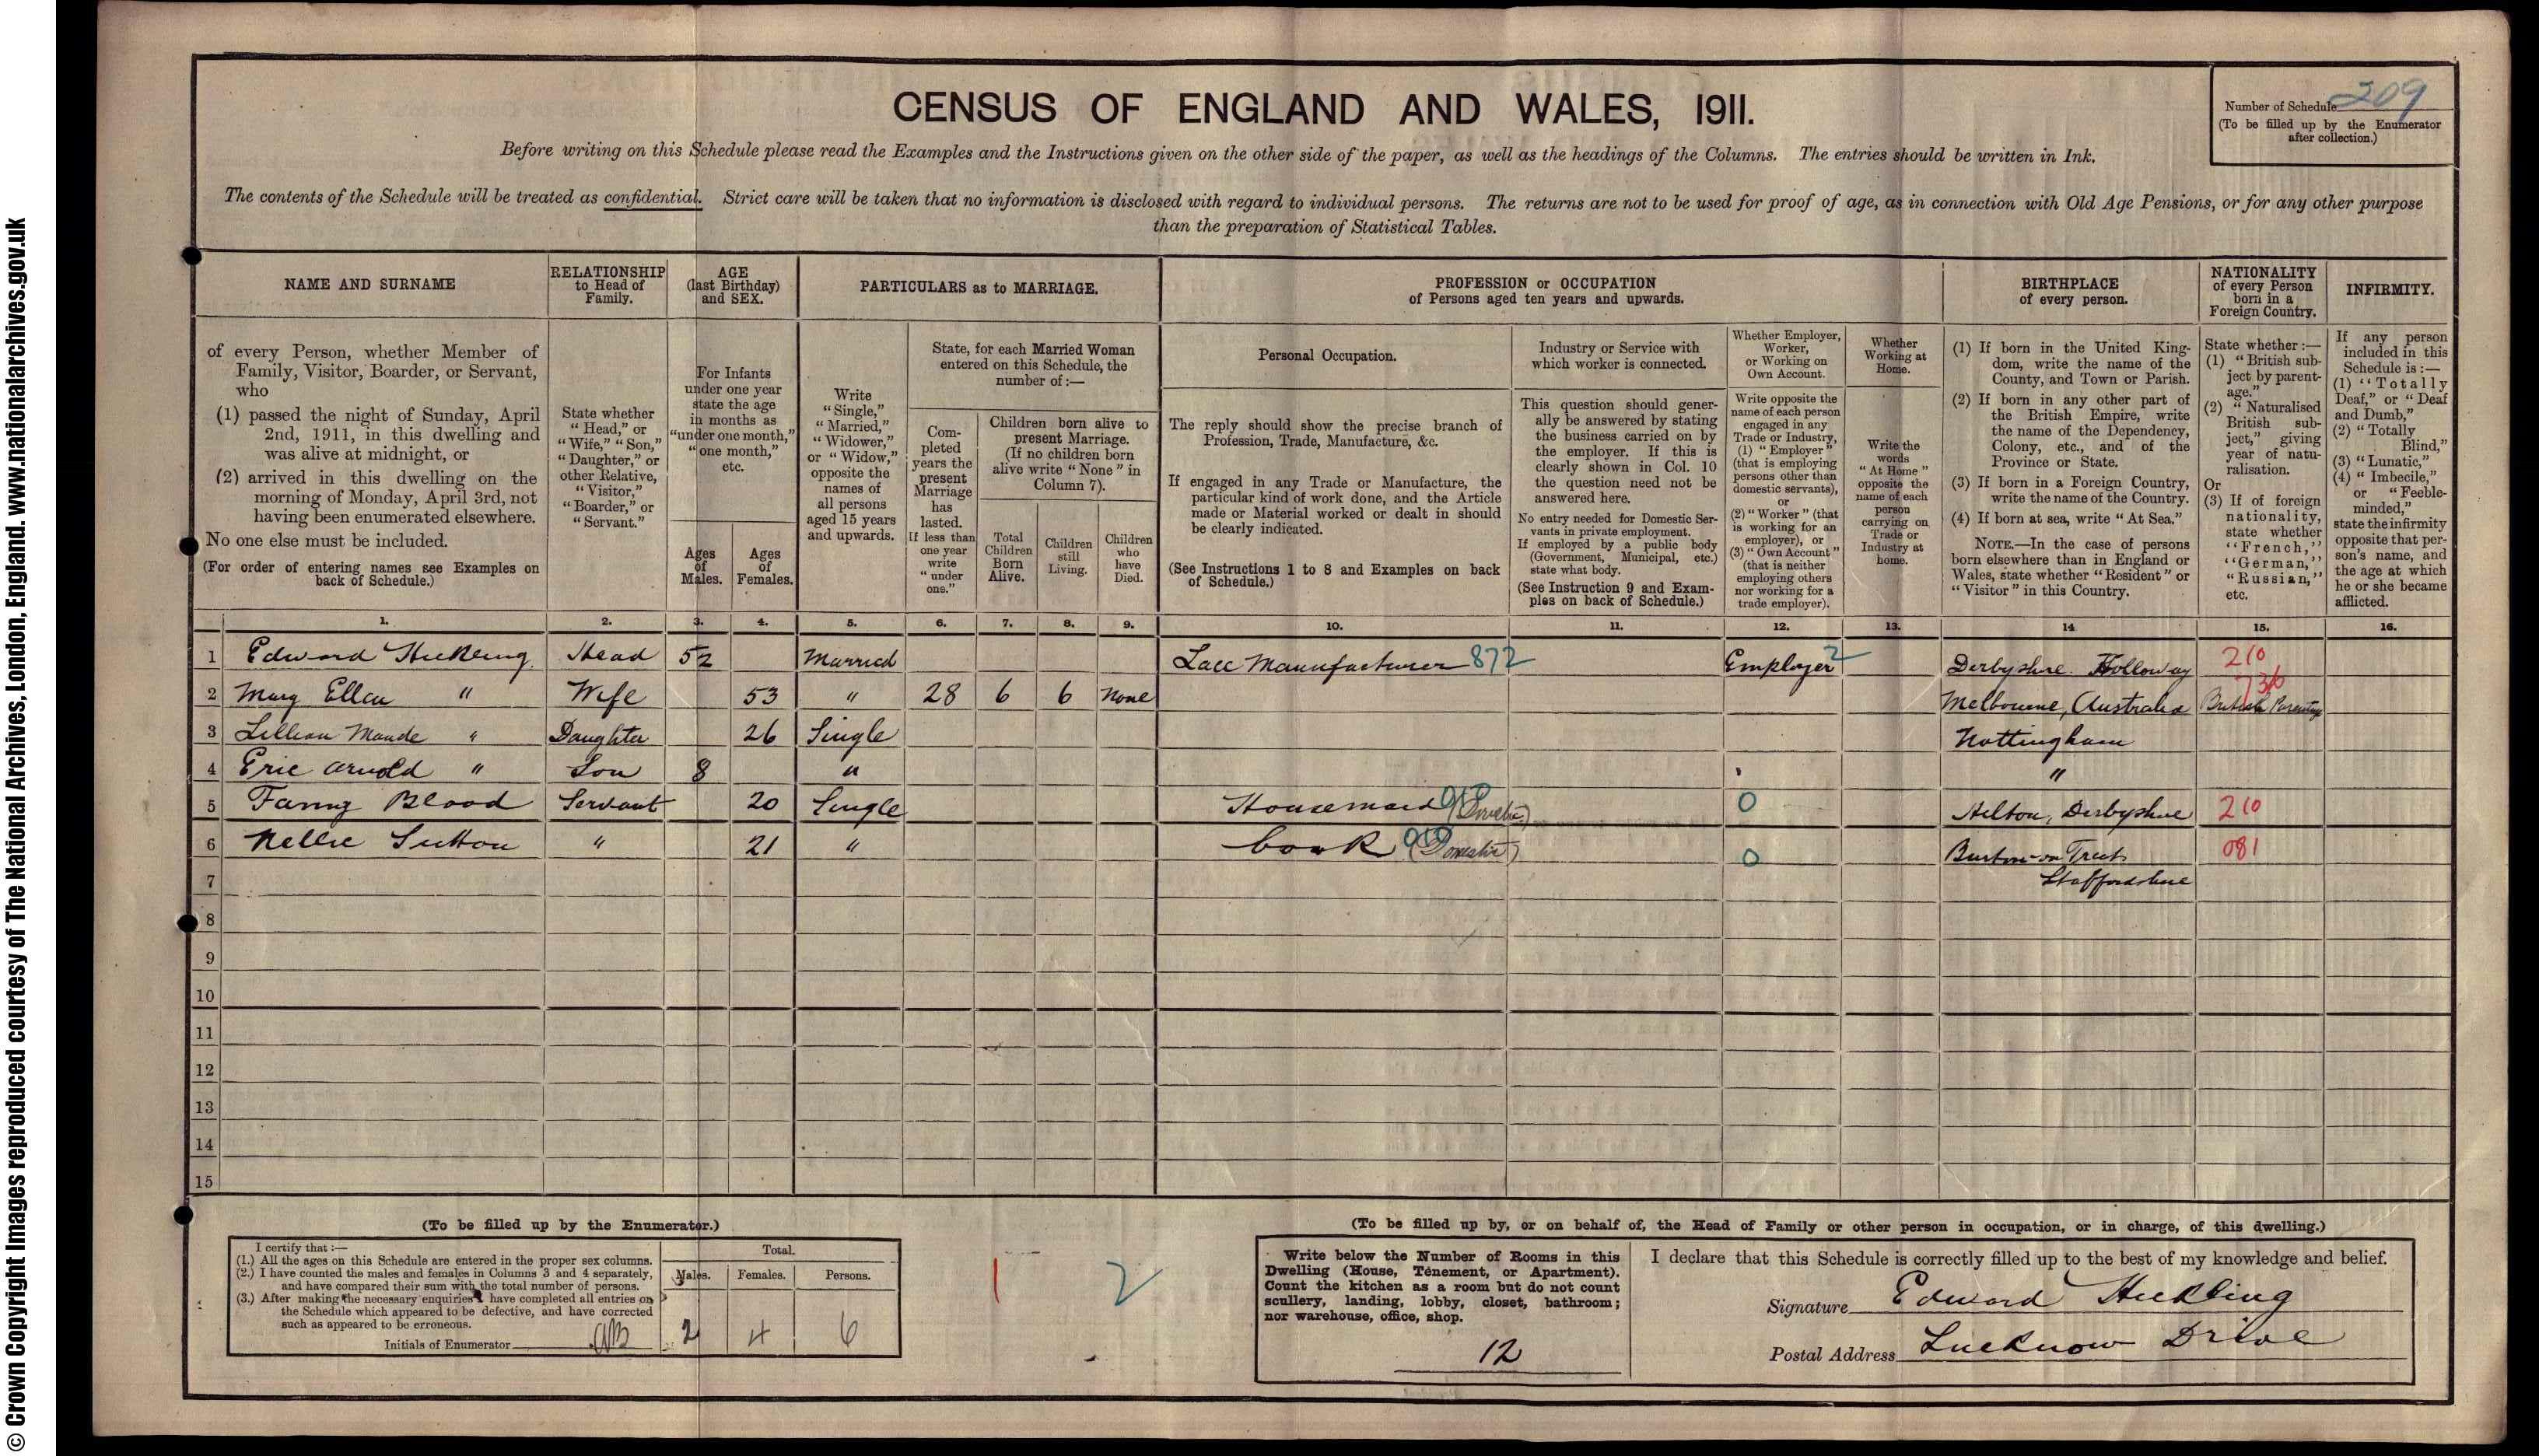 © Crown Copyright Images reproduced courtesy of The National Archives, London, England. www.nationalarchives.gov.uk
CENSUS OF ENGLAND AND WALES, 1911.
Number of Schedule 209
(To be filled up by the Enumerator
after collection.)
Before writing on this Schedule please read the Examples and the Instructions given on the other side of the paper, as well as the headings of the Columns. The entries should be written in Ink.
The contents of the Schedule will be treated as confidential. Strict care will be taken that no information is disclosed with regard to individual persons. The returns are not to be used for proof of age, as in connection with Old Age Pensions, or for any other purpose
than the preparation of Statistical Tables.
NAME AND SURNAME
of every Person, whether Member of
Family, Visitor, Boarder, or Servant,
who
(1) passed the night of Sunday, April
2nd, 1911, in this dwelling and
was alive at midnight, or
(2) arrived in this dwelling on the
morning of Monday, April 3rd, not
having been enumerated elsewhere.
No one else must be included.
(For order of entering names see Examples on
back of Schedule.)
RELATIONSHIP
to Head of
Family.
State whether
"Head," or
"Wife," "Son,"
"Daughter," or
other Relative,
"Visitor,"
"Boarder," or
"Servant."
AGE
(last Birthday)
and SEX.
For Infants
under one year
state the age
in months as
"under one month,"
"one month,"
etc.
Ages
of
Males.
Ages
of
Females.
PARTICULARS as to MARRIAGE.
Write
"Single,"
"Married,"
"Widower,"
or "Widow,"
opposite the
names of
all persons
aged 15 years
and upwards.
State, for each Married Woman
entered on this Schedule, the
number of :—
Com-
pleted
years the
present
Marriage
has
lasted.
If less than
one year
write
"under
one."
Children born alive to
present Marriage.
(If no children born
alive write "None" in
Column 7).
Total
Children
Born
Alive.
Children
still
Living.
Children
who
have
Died.
PROFESSION or OCCUPATION
of Persons aged ten years and upwards.
Personal Occupation.
The reply should show the precise branch of
Profession, Trade, Manufacture, &c.
If engaged in any Trade or Manufacture, the
particular kind of work done, and the Article
made or Material worked or dealt in should
be clearly indicated.
(See Instructions 1 to 8 and Examples on back
of Schedule.)
Industry or Service with
which worker is connected.
This question should gener-
ally be answered by stating
the business carried on by
the employer. If this is
clearly shown in Col. 10
the question need not be
answered here.
No entry needed for Domestic Ser-
vants in private employment.
If employed by a public body
(Government, Municipal, etc.)
state what body.
(See Instruction 9 and Exam-
ples on back of Schedule.)
Whether Employer,
Worker,
or Working on
Own Account.
Write opposite the
name of each person
engaged in any
Trade or Industry,
(1) "Employer"
(that is employing
persons other than
domestic servants),
or
(2) "Worker" (that
is working for an
employer), or
(3) "Own Account"
(that is neither
employing others
nor working for a
trade employer).
Whether
Working at
Home.
Write the
words
"At Home"
opposite the
name of each
person
carrying on
Trade or
Industry at
home.
BIRTHPLACE
of every person.
(1) If born in the United King-
dom, write the name of the
County, and Town or Parish.
(2) If born in any other part of
the British Empire, write
the name of the Dependency,
Colony, etc., and of the
Province or State.
(3) If born in a Foreign Country,
write the name of the Country.
(4) If born at sea, write "At Sea."
NOTE.—In the case of persons
born elsewhere than in England or
Wales, state whether "Resident" or
"Visitor" in this Country.
NATIONALITY
of every Person
born in a
Foreign Country.
State whether :—
(1) "British sub-
ject by parent-
age."
(2) "Naturalised
British sub-
ject," giving
year of natu-
ralisation.
Or
(3) If of foreign
nationality,
state whether
"French,"
"German,"
"Russian,"
etc.
INFIRMITY.
If any person
included in this
Schedule is :—
(1) "Totally
Deaf," or "Deaf
and Dumb,"
(2) "Totally
Blind,"
(3) "Lunatic,"
(4) "Imbecile,"
or "Feeble-
minded,"
state the infirmity
opposite that per-
son's name, and
the age at which
he or she became
afflicted.
1. 2. 3. 4. 5. 6. 7. 8. 9. 10. 11. 12. 13. 14 15. 16.
1 Edward Hickling Head 52 Married Lace Manufacturer 872 Employer 2 Derbyshire Holloway 210
2 Mary Ellen " Wife 53 " 28 6 6 None Melbourne, Australia British Parentage
3 Lillian Maude " Daughter 26 Single Nottingham
4 Eric Arnold " Son 8 " "
5 Fanny Blood Servant 20 Single Housemaid (Domestic) 0 Hilton, Derbyshire 210
6 Nellie Sutton " 21 " Cook (Domestic) 0 Burton-on-Trent 081
7 Staffordshire
8
9
10
11
12
13
14
15
(To be filled up by the Enumerator.)
I certify that :—
(1.) All the ages on this Schedule are entered in the proper sex columns.
(2.) I have counted the males and females in Columns 3 and 4 separately,
and have compared their sum with the total number of persons.
(3.) After making the necessary enquiries I have completed all entries on
the Schedule which appeared to be defective, and have corrected
such as appeared to be erroneous.
Initials of Enumerator
Total.
Males. Females. Persons.
2 4 6
1 2
(To be filled up by, or on behalf of, the Head of Family or other person in occupation, or in charge, of this dwelling.)
Write below the Number of Rooms in this
Dwelling (House, Tenement, or Apartment).
Count the kitchen as a room but do not count
scullery, landing, lobby, closet, bathroom;
nor warehouse, office, shop.
12
I declare that this Schedule is correctly filled up to the best of my knowledge and belief.
Signature Edward Hickling
Postal Address Lucknow Drive